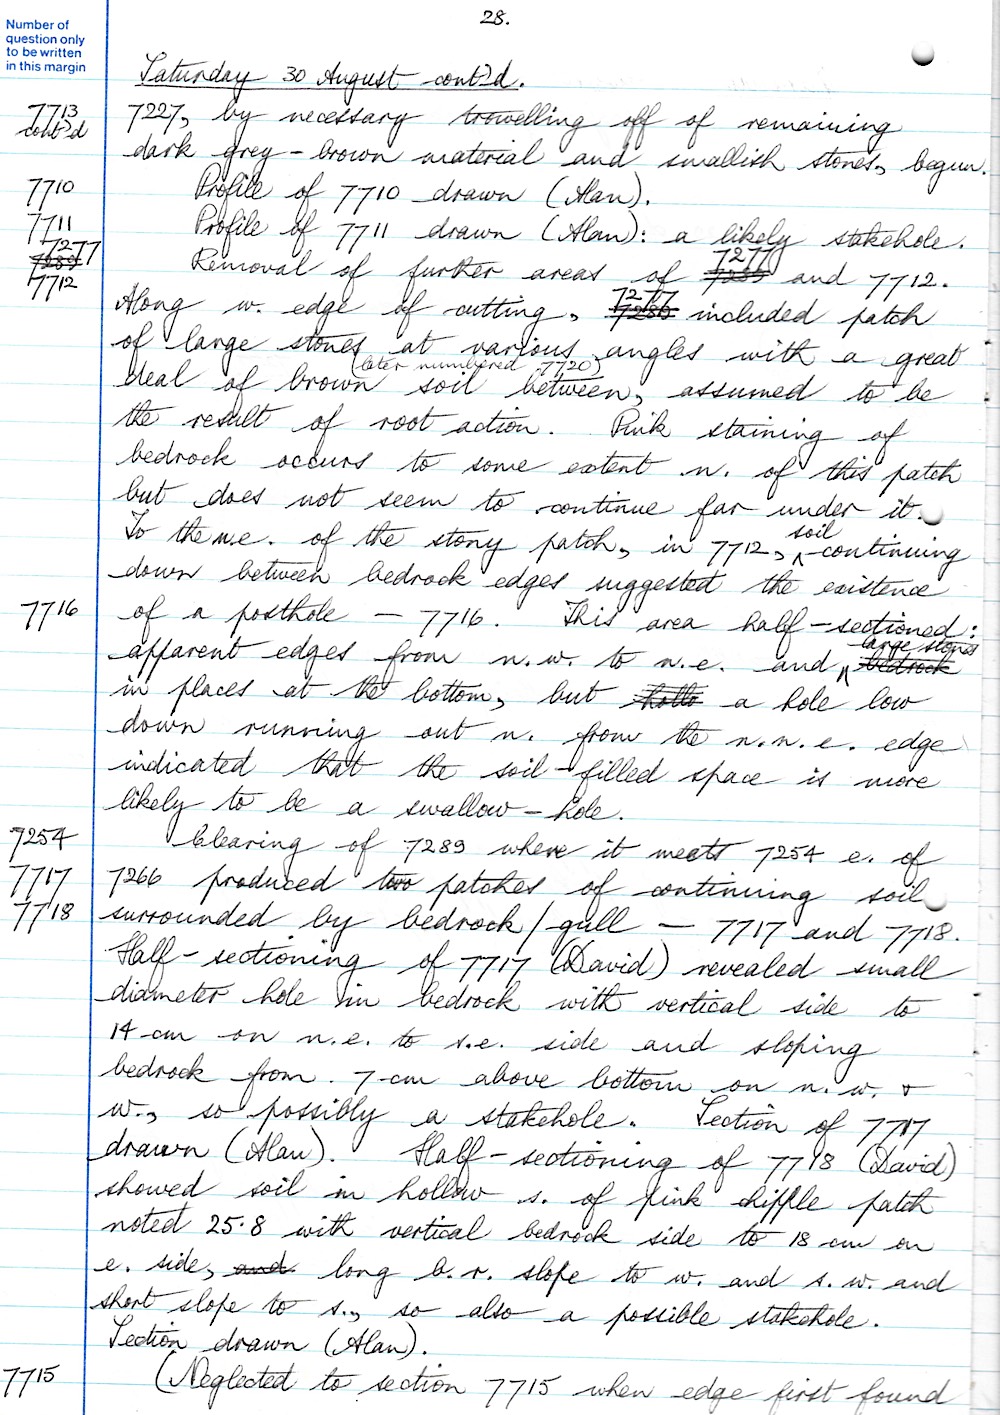 28.
Number of
question only
to be written
in this margin
Saturday 30 August cont'd.
7713 7227, by necessary trowelling off of remaining
cont'd dark grey-brown material and smallish stones, begun.
7710 Profile of 7710 drawn (Alan).
7711 Profile of 7711 drawn (Alan): a likely stakehole.
7277 7277
7289 Removal of further areas of 7289 and 7712.
7712 7277
Along w. edge of cutting, 7289 included patch
of large stones at various angles with a great
(later numbered 7720)
deal of brown soil between, assumed to be
the result of root action. Pink staining of
bedrock occurs to some extent n. of this patch
but does not seem to continue far under it.
soil
To the n.e. of the stony patch, in 7712, ʌ continuing
down between bedrock edges suggested the existence
7716 of a posthole – 7716. This area half-sectioned:
large stones
apparent edges from n.w. to n.e. and ʌ bedrock
in places at the bottom, but hollo a hole low
down running out n. from the n.n.e. edge
indicated that the soil-filled space is more
likely to be a swallow-hole.
7254 Clearing of 7289 where it meets 7254 e. of
7717 7266 produced two patches of continuing soil
7718 surrounded by bedrock/gull – 7717 and 7718.
Half-sectioning of 7717 (David) revealed small
diameter hole in bedrock with vertical side to
14 cm on n.e. to s.e. side and sloping
bedrock from 7 cm above bottom on n.w. &
w., so possibly a stakehole. Section of 7717
drawn (Alan). Half-sectioning of 7718 (David)
showed soil in hollow s. of pink chipple patch
noted 25.8 with vertical bedrock side to 18 cm on
e. side, and long b.r. slope to w. and s.w. and
short slope to s., so also a possible stakehole.
Section drawn (Alan).
7715 (Neglected to section 7715 when edge first found